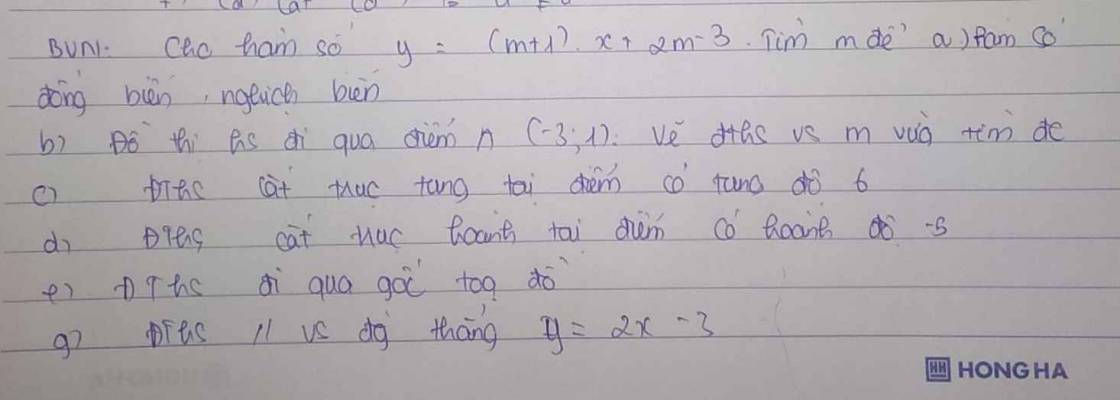 BVN1: Cho hàm số y = (m+1). x + 2m-3. Tìm m để a) hàm số
đồng biến, nghịch biến
b) Đồ thị hs đi qua điểm A (-3; 1). Vẽ đths vs m vừa tìm đc
c) ĐThs cắt trục tung tại điểm có tung độ 6
d) ĐThs cắt trục hoành tại điểm có hoành độ -5
e) ĐThs đi qua gốc toạ độ
g) ĐThs // vs đg thẳng y = 2x - 3
HH HONG HA